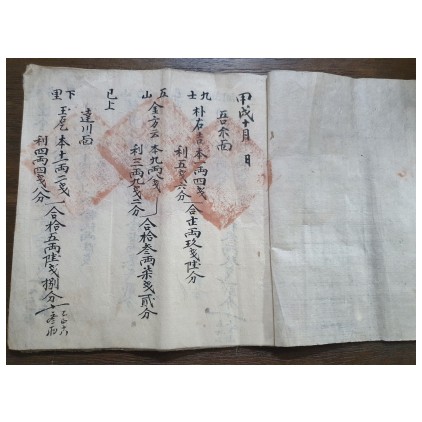 甲戌十月 日
吾尒面
九士 朴右吉 本一両四戔
利五戔六分
合壱両玖戔陸分
五山 金方云 本九両八戔
利三両九戔二分
合拾叁両柒戔貳分
已上
達川面
下里 本十一両二戔
利四両四戔八分
合拾五両陸戔捌分